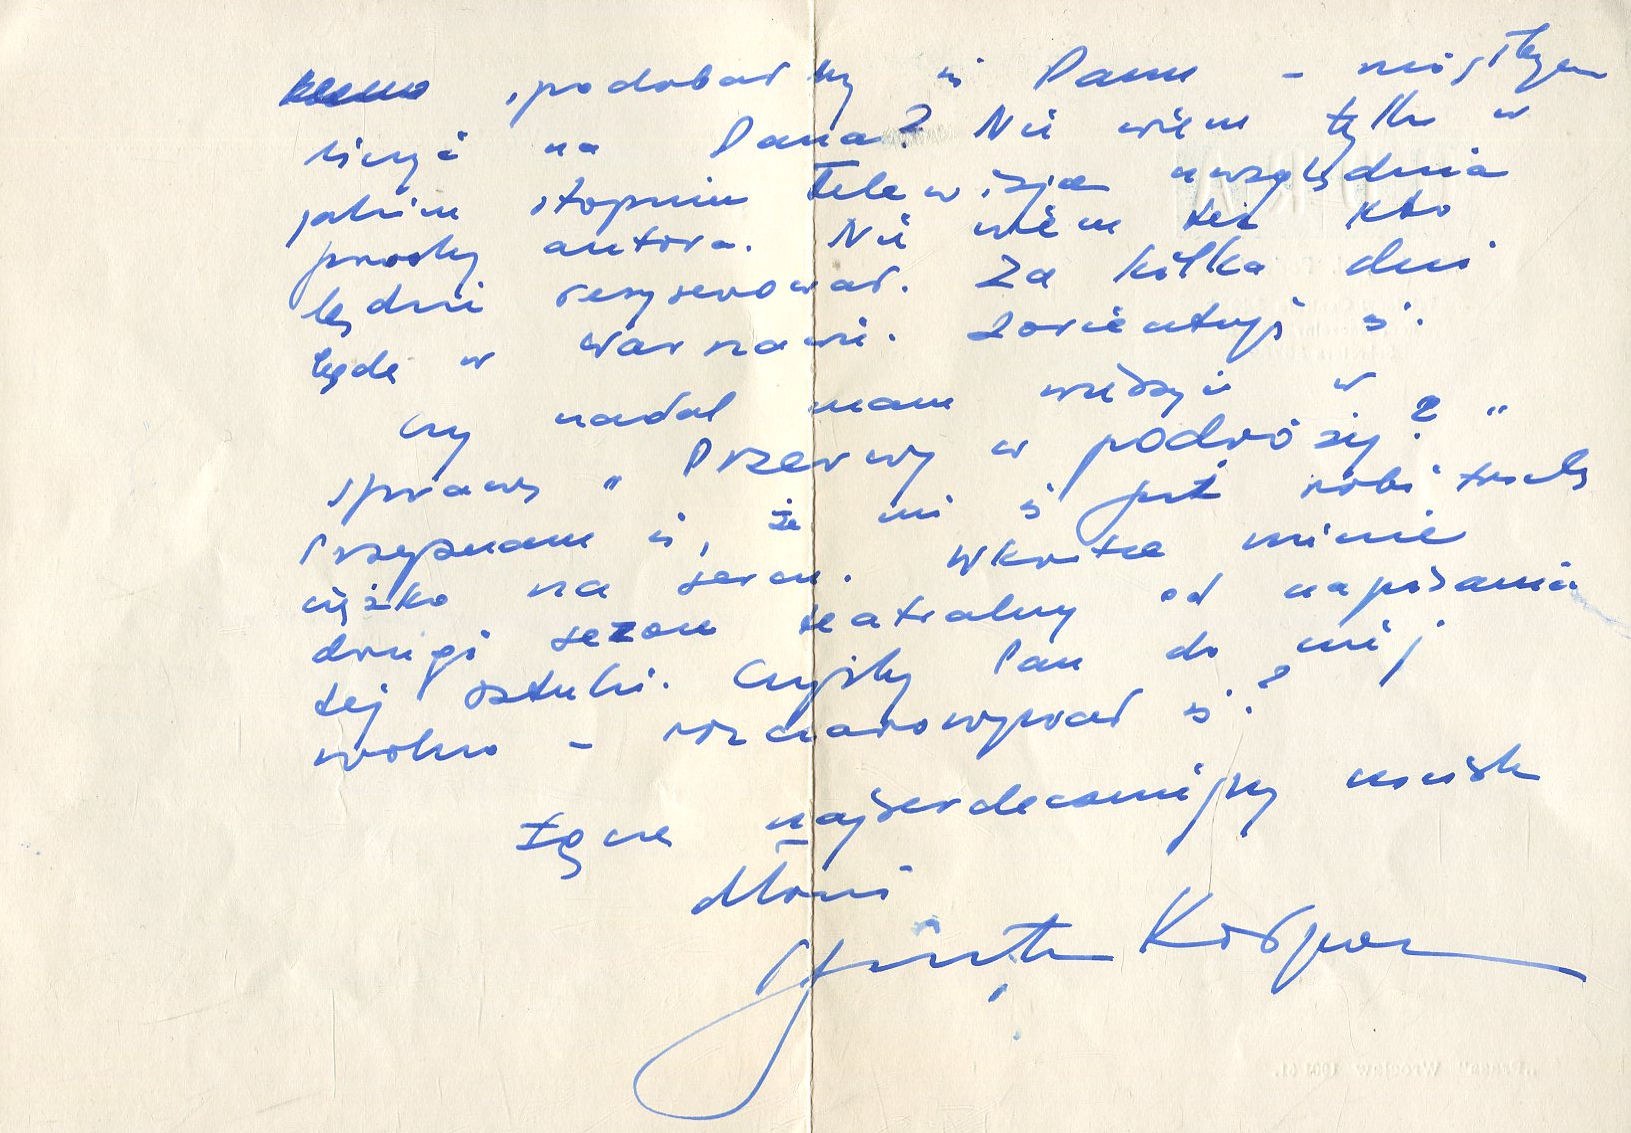 spodobałby się Panu – mógłbym
liczyć na Pana? Nie wiem tylko w
jakim stopniu Telewizja uwzględnia
prośby autora. Nie wiem też kto
będzie reżyserował. Za kilka dni
będę w Warszawie. Zorientuję się.
Czy nadal mam wierzyć w
sprawę „Przerwy w podróży?"
Przyznam się, że mi się już robi trochę
ciężko na sercu. Wkrótce minie
drugi sezon teatralny od napisania
tej sztuki. Czyżby Pan do niej
wolno – rozczarowywał się?
Łączę najserdeczniejszy uścisk
dłoni